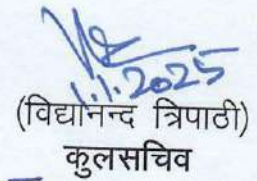 1.1.2025
(विद्यानन्द त्रिपाठी)
कुलसचिव